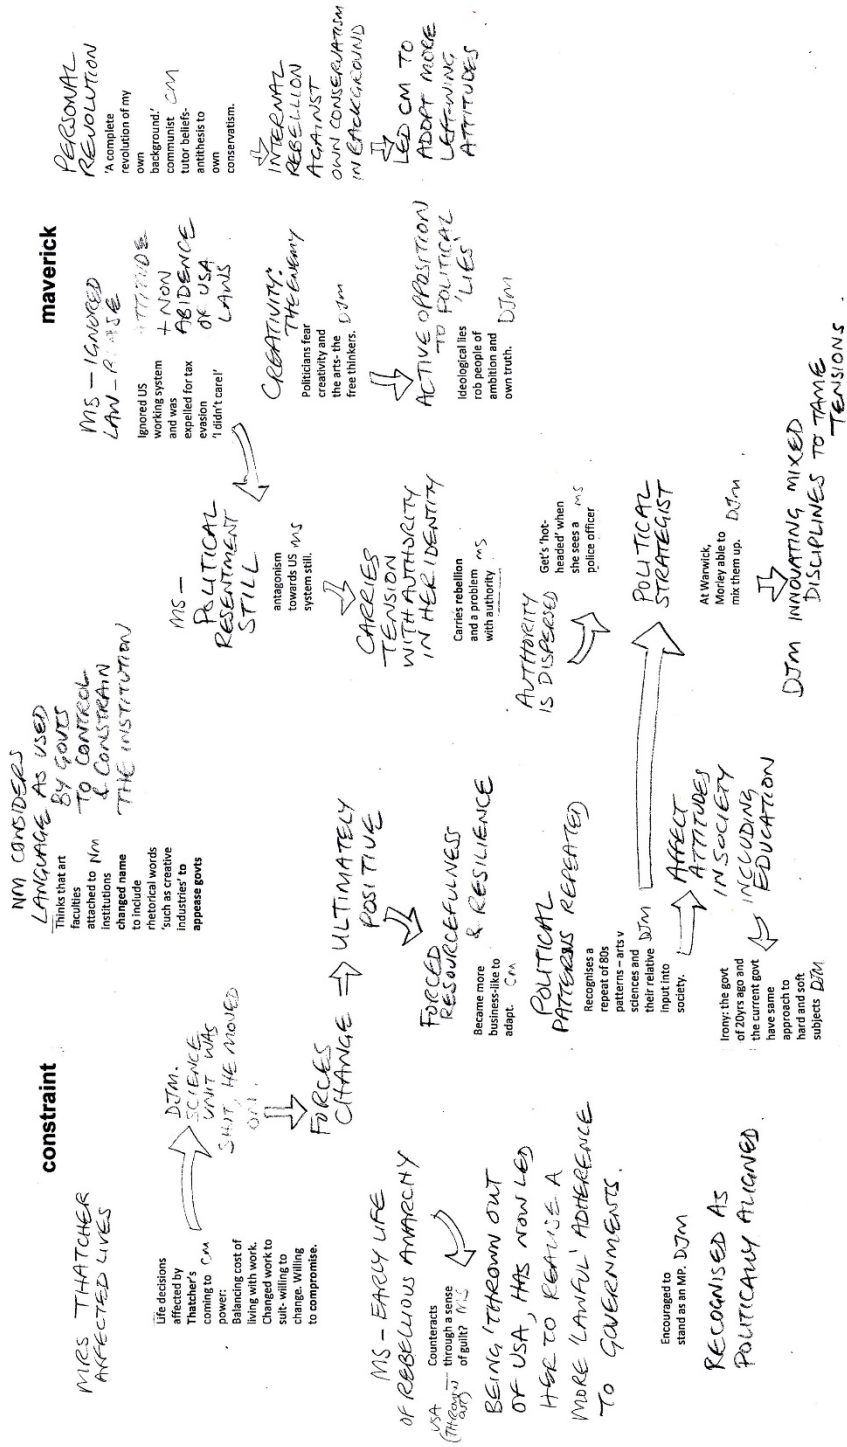 constraint
maverick
MRS THATCHER
AFFECTED LIVES
Life decisions
affected by
Thatcher's
coming to CM
power:
Balancing cost of
living with work.
Changed work to
suit- willing to
change. Willing
to compromise.
DJM.
SCIENCE
UNIT WAS
SHUT, HE MOVED
ON.
FORCES
CHANGE
ULTIMATELY
POSITIVE
FORCED
RESOURCEFULNESS
& RESILIENCE
Became more
business-like to
adapt. CM
MS - EARLY LIFE
OF REBELLIOUS ANARCHY
USA
(THROWN
OUT)
Counteracts
through a sense
of guilt? MS
BEING 'THROWN OUT
OF USA, HAS NOW LED
HER TO REALISE A
MORE 'LAWFUL' ADHERENCE
TO GOVERNMENTS.
Encouraged to
stand as an MP. DJM
RECOGNISED AS
POLITICALLY ALIGNED
NM CONSIDERS
LANGUAGE AS USED
BY GOVTS
TO CONTROL
& CONSTRAIN
THE INSTITUTION
Thinks that art
faculties
attached to NM
institutions
changed name
to include
rhetorical words
'such as creative
industries' to
appease govts
POLITICAL
PATTERNS REPEATED
Recognises a
repeat of 80s
patterns – arts v
sciences and
their relative DJM
input into
society.
AFFECT
ATTITUDES
IN SOCIETY
INCLUDING
EDUCATION
Irony: the govt
of 20yrs ago and
the current govt
have same
approach to
hard and soft
subjects DJM
MS -
POLITICAL
RESENTMENT
STILL
antagonism
towards US MS
system still.
CARRIES
TENSION
WITH AUTHORITY
IN HER IDENTITY
Carries rebellion
and a problem MS
with authority
AUTHORITY
IS DISPERSED
Get's 'hot-
headed' when
she sees a MS
police officer
POLITICAL
STRATEGIST
At Warwick,
Morley able to
mix them up. DJM
DJM INNOVATING MIXED
DISCIPLINES TO TAME
TENSIONS.
MS - IGNORED
ATTITUDE
+ NON
ABIDENCE
OF USA
LAWS
Ignored US
working system
and was
expelled for tax
evasion
'I didn't care!'
CREATIVITY:
THE ENEMY
Politicians fear
creativity and
the arts- the DJM
free thinkers.
ACTIVE OPPOSITION
TO POLITICAL
'LIES'
Ideological lies
rob people of
ambition and
own truth. DJM
PERSONAL
REVOLUTION
'A complete
revolution of my
own
background.' CM
communist
tutor beliefs-
antithesis to
own
conservatism.
INTERNAL
REBELLION
AGAINST
OWN CONSERVATISM
IN BACKGROUND
LED CM TO
ADOPT MORE
LEFT-WING
ATTITUDES